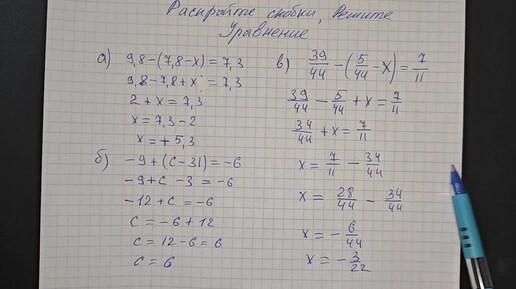 Раскройте скобки, Решите
Уравнение
а) 9,8-(7,8-x)=7,3
9,8-7,8+x=7,3
2+x=7,3
x=7,3-2
x=+5,3
б) -9+(c-31)=-6
-9+c-3=-6
-12+c=-6
c=-6+12
c=12-6=6
c=6
в) 39/44-(5/44-x)=7/11
39/44-5/44+x=7/11
34/44+x=7/11
x=7/11-34/44
x=28/44-34/44
x=-6/44
x=-3/22